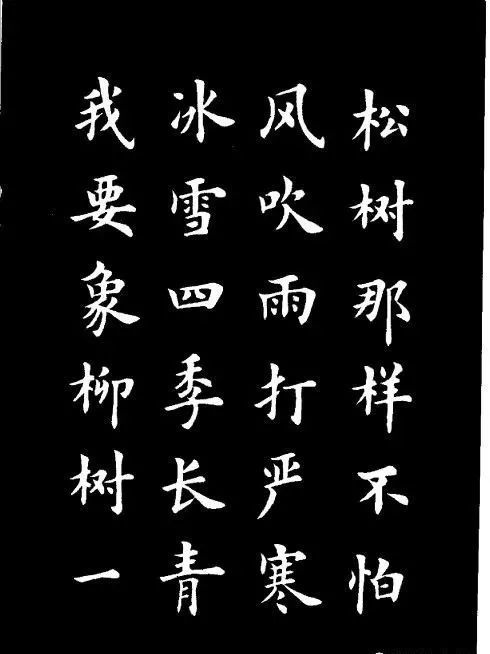 松树那样不怕
风吹雨打严寒
冰雪四季长青
我要象柳树一